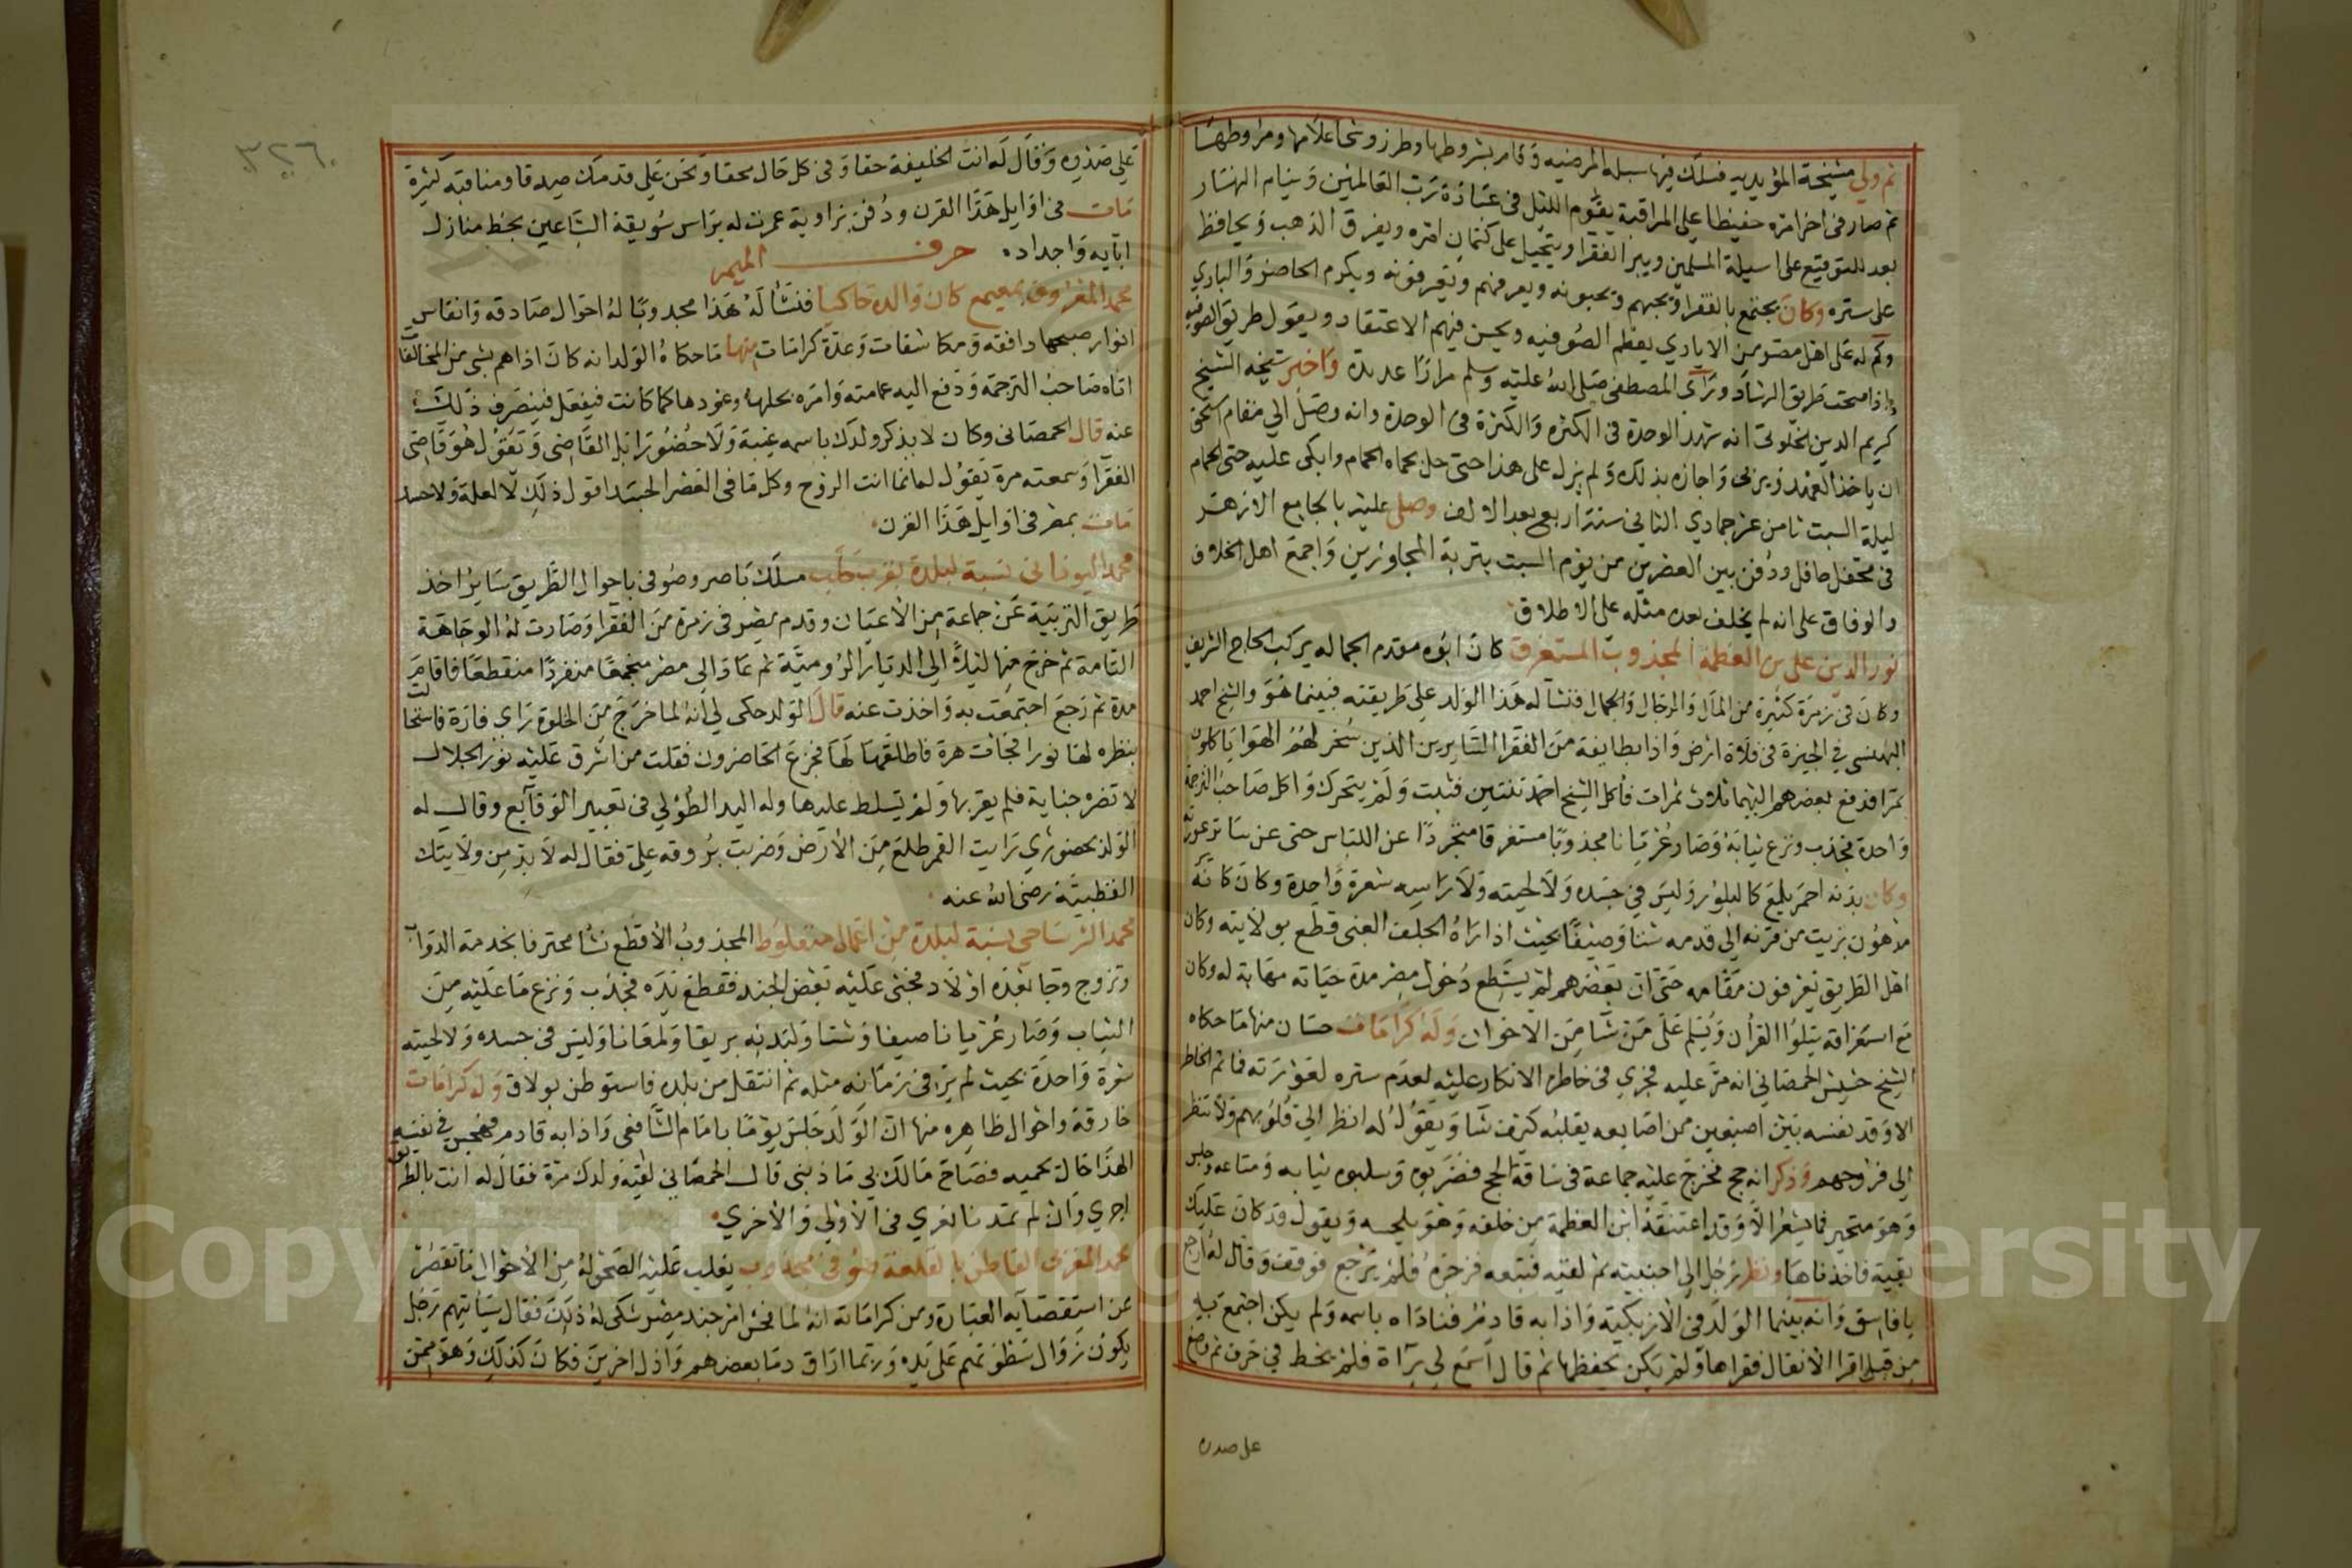 ثم ولي مشيخة المؤيديه فسلك فيها سبله المرضيه وقام بشروطها وطرز وشحا علامها ومروطها
ثم صار في اخر امره حفيظا علي المراقبة يقوم الليل في عبادة رب العالمين وينام النهار
بعد للتوقيع على اسيلة المسلمين ويبر الفقرا ويتحيل على كتمان امره ويفرق الذهب ويحافظ
على ستره وكان يجتمع بالفقرا ويحبهم ويحبونه ويعرفهم ويعرفونه ويكرم الحاضر والبادي
وكم له على اهل مصر من الايادي يعظم الصوفيه ويحسن فيهم الاعتقاد ويقول طريق الصوفيه
اذا صحت طريق الرشاد وراى المصطفى صلى الله عليه وسلم مرارا عديدة واخبر شيخه الشيخ
كريم الدين الخلوتي انه شهد الوحدة في الكثره والكثرة في الوحدة وانه وصل الي مقام استحق
ان ياخذ العهد ويربي واجازه بذلك ولم يزل على هذا حتى حل بحماه الحمام وابكى عليه حتى الحمام
ليلة السبت ثامن عشر جمادي الثاني سنة اربع بعد الالف وصلى عليه بالجامع الازهر
في محفل حافل ودفن بين العصرين من يوم السبت بتربة المجاورين واجمع اهل الخلاف
والوفاق على انه لم يخلف بعده مثله على الاطلاق
نور الدين علي بن العظمة المجذوب المستغرق كان ابوه مقدم الجماله بركب الحاج الشريف
وكان في زمرة كثيرة من المال والرجال والجمال فنشأ له هذا الولد علي طريقته فبينما هو والشيخ احمد
البهنسي في الجيزة في فلاة ارض واذا بطايفة من الفقرا السايرين الذين سخر لهم الهوا ياكلون
تمرا فدفع بعضهم اليهما ثلاث تمرات فاكل الشيخ احمد ثنتين فثبت ولم يتحرك واكل صاحب الترجمة
واحدة فجذب ونزع ثيابه وصار عريانا مجذوبا مستغرقا متجردا عن اللباس حتى عن ساتر عورته
وكان بدنه احمر يلمع كالبلور وليس في جسده ولا لحيته ولا راسه شعرة واحدة وكان كانه
مدهون بزيت من قرنه الى قدمه شتا وصيفا بحيث اذا راه الجلف الغبي قطع بولايته وكان
اهل الطريق يعرفون مقامه حتى ان بعضهم لم يستطع دخول مصر مدة حياته مهابة له وكان
مع استغراقه يتلوا القران ويسلم على من شا من الاخوان وله كرامات حسان منها ما حكاه
الشيخ حشيش الحمصاني انه مر عليه فجري في خاطره الانكار عليه لعدم ستره لعورته فما تم الخاطر
الا وقد نفسه بين اصبعين من اصابعه يقلبه كيف شا ويقول له انظر الي قلوبهم ولا تنظر
الي فروجهم وذكر انه حج فخرج عليه جماعة في ساقة الحج فضربوه وسلبوه ثيابه ومتاعه وجلس
وهو متحير فما يشعر الا وقد اعتنقه ابن العظمة من خلفه وهو يلحسه ويقول قد كان عليك
بقية فاخذناها ونظر رجل الى اجنبيته ثم لقيه فتبعه فزجره فلم يرجع فوقف وقال له ارجع
يا فاسق وانه بينما الولد في الازبكية واذا به قادم فناداه باسمه ولم يكن اجتمع به
من قبل اقرا الانفال فقراها ولم يكن يحفظها ثم قال اسمع لي براة فلم يخط في حرف ثم وضع
على صدره
٣٢٦
علي صدره وقال له انت الخليفة حقا وفي كل حال محقا ونحن علي قدمك صدقا ومناقبه كثيرة
مات في اوايل هذا القرن ودفن بزاوية عمرت له براس سويقة السباعين بخط منازل
ابايه واجداده حرف الميم
محمد المعروف بميميع كان والده حاكيا فنشا له هذا مجذوبا له احوال صادقه وانفاس
انوار صبحها دافقه ومكاشفات وعدة كرامات منها ما حكاه الولد انه كان اذا هم بشي من المخالفات
اتاه صاحب الترجمة ودفع اليه عمامته وامره بحلها وعودها كما كانت فيفعل فينصرف ذلك
عنه قال الحمصاني وكان لا يذكر ولدك باسمه غيبة ولا حضورا بل القاضي ويقول هو قاضي
الفقرا وسمعته مرة يقول له انما انت الروح وكل ما في العصر الجسد اقول ذلك لا لعلة ولا حسد
مات بمصر في اوايل هذا القرن
محمد اليوناني نسبة لبلدة بقرب حلب مسلك ناصر وصوفي باحوال الطريق ساير اخذ
طريق التربية عن جماعة من الاعيان وقدم مصر في زمرة من الفقرا وصارت له الوجاهة
التامة ثم خرج منها ليلا الي الديار الرومية ثم عاد الى مصر متجمعا منفردا منقطعا فاقام
مدة ثم رجع اجتمعت به واخذت عنه قال الولد حكى لي انه لما خرج من الخلوة راي فارة فاستحالت
بنظره لها نورا فجات هرة فاطلقها لها فجزع الحاضرون فقلت من اشرق عليه نور الجلال
لا تضره جناية فلم يقربها ولم تسلط عليها وله اليد الطولي في تعبير الوقايع وقال له
الولد بحضوري رايت القمر طلع من الارض وضربت بروقه علي فقال له لا بد من ولايتك
القطبية رضي الله عنه
محمد الشرساحي نسبة لبلدة من اعمال منفلوط المجذوب الاقطع نشا محترفا بخدمة الدواب
وتزوج وجا بعده اولاد فجنى عليه بعض الجند فقطع يده فجذب ونزع ما عليه من
الثياب وصار عريانا صيفا وشتا ولبدنه بريقا ولمعانا وليس في جسده ولا لحيته
شعرة واحدة بحيث لم ير في زمانه مثله ثم انتقل من بلده فاستوطن بولاق وله كرامات
خارقة واحوال ظاهره منها ان الولد جلس يوما بامام الشافعي واذا به قادم فهجس في نفسه
الهذا حال يحميه فصاح مالك بي ماذنبي قال الحمصاني لقيه ولدك مرة فقال له انت بالطريق
اجري وان لم تمدنا نعري في الاولي والاخري
محمد المغربي القاطن بالقلعة صوفي مجذوب يغلب عليه الصحو له من الاحوال ما تقصر
عن استقصايه العبارة ومن كراماته انه لما فحش امر جند مصر شكي له ذلك فقال سياتيهم رجل
يكون زوال سطوتهم علي يده وربما اراق دما بعضهم واذل اخرين فكان كذلك وهو ممن